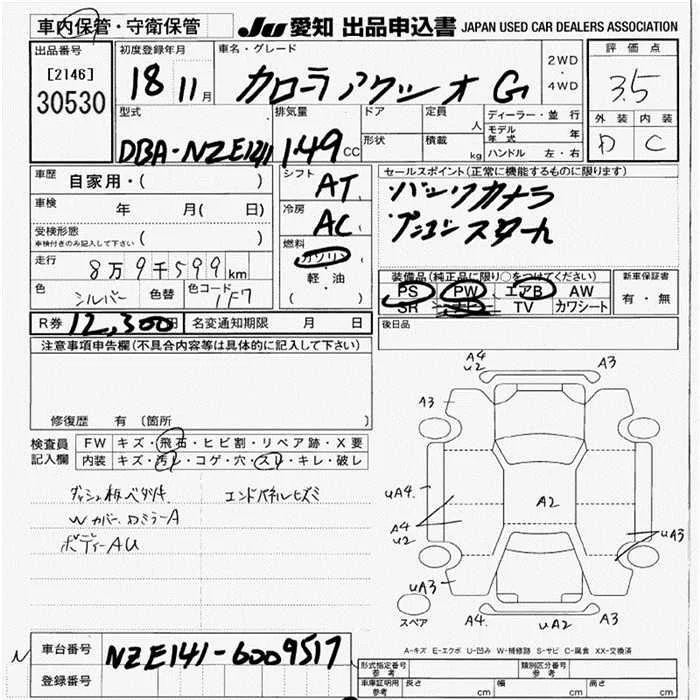 車内保管・守衛保管
JU 愛知 出品申込書 JAPAN USED CAR DEALERS ASSOCIATION
出品番号
[2146]
30530
初度登録年月
18 11月
車名・グレード
カローラアクシオ G
2WD
・
4WD
評価点
3.5
外装 内装
D C
型式
DBA-NZE141
排気量
1.49 CC
ドア
形状
定員 人
積載 kg
ディーラー・並行
モデル年式 年
ハンドル 左・右
車歴 自家用・( )
車検 年 月( 日)
受検形態
車検付きのみ記入して下さい ( )
走行 8万9千599km
色 シルバー 色替 色コード 1F7
シフト AT
冷房 AC
燃料
ガソリン
軽・油
( )
セールスポイント(正常に機能するものに限ります)
バックカメラ
プッシュスタート
装備品(純正品に限り○をつけてください)
PS PW エアB AW
SR TV カワシート
新車保証書
有・無
R券 12,300円 名変通知期限 月 日
後日品
注意事項申告欄(不具合内容等は具体的に記入して下さい)
修復歴 有 〔箇所
検査員記入欄
FW キズ・飛石・ヒビ割・リペア跡・X要
内装 キズ・汚レ・コゲ・穴・スレ・キレ・破レ
ダッシュ板ベタツキ エンドパネルヒズミ
Wカバー.ドアミラーA
ボディーAU
A4
U2
A3
A3
UA4
A4
U2
A2
UA3
UA3
スペア
A4
UA2
A3
A-キズ E-エクボ U-凹み W-補修跡 S-サビ C-腐食 XX-交換済
車台番号 NZE141-6009517
登録番号
型式指定番号 参考
類別区分番号 参考
車庫証明用 参考 長さ cm 幅 cm 高さ cm